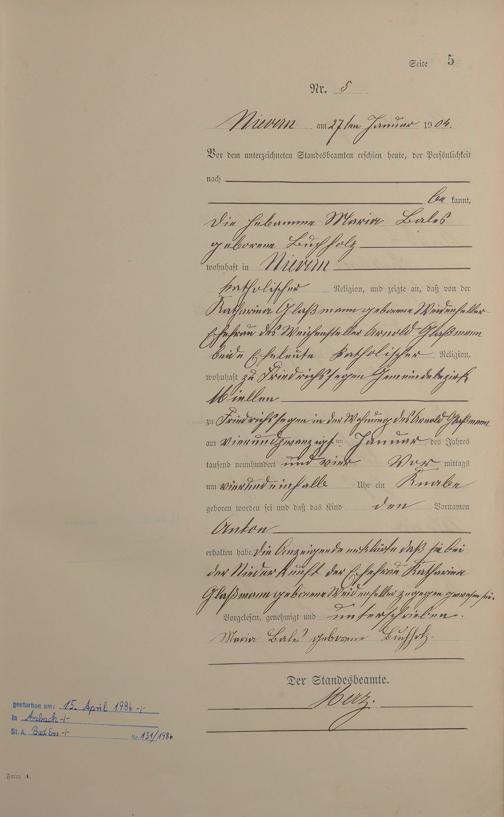 Seite 5
Nr. 5
Nievern am 27ten Januar 1904.
Vor dem unterzeichneten Standesbeamten erschien heute, der Persönlichkeit
nach
be kannt,
die Hebamme Maria Bales
geborene Buchholz
wohnhaft in Nievern
katholischer Religion, und zeigte an, daß von der
Katharina Glaßmann geborene Weidenfeller
Ehefrau des Weichensteller Arnold Glaßmann
beide Eheleute katholischer Religion,
wohnhaft zu Friedrichssegen Gemeindebezirk
Miellen
zu Friedrichssegen in der Wohnung des Arnold Glaßmann
am vierundzwanzigsten Januar des Jahres
tausend neunhundert und vier Vor mittags
um vierundeinhalb Uhr ein Knabe
geboren worden sei und daß das Kind den Vornamen
Anton
erhalten habe. Die Anzeigende erklärte daß sie bei
der Niederkunft der Ehefrau Katharina
Glaßmann geborene Weidenfeller zugegen gewesen sei.
Vorgelesen, genehmigt und unterschrieben.
Maria Bales geborene Buchholz.
Der Standesbeamte.
Herz.
gestorben am: 15. April 1986 -/-
in Arzbach -/-
St. A. Bad Ems -/- Nr. 131/1986
Form A.